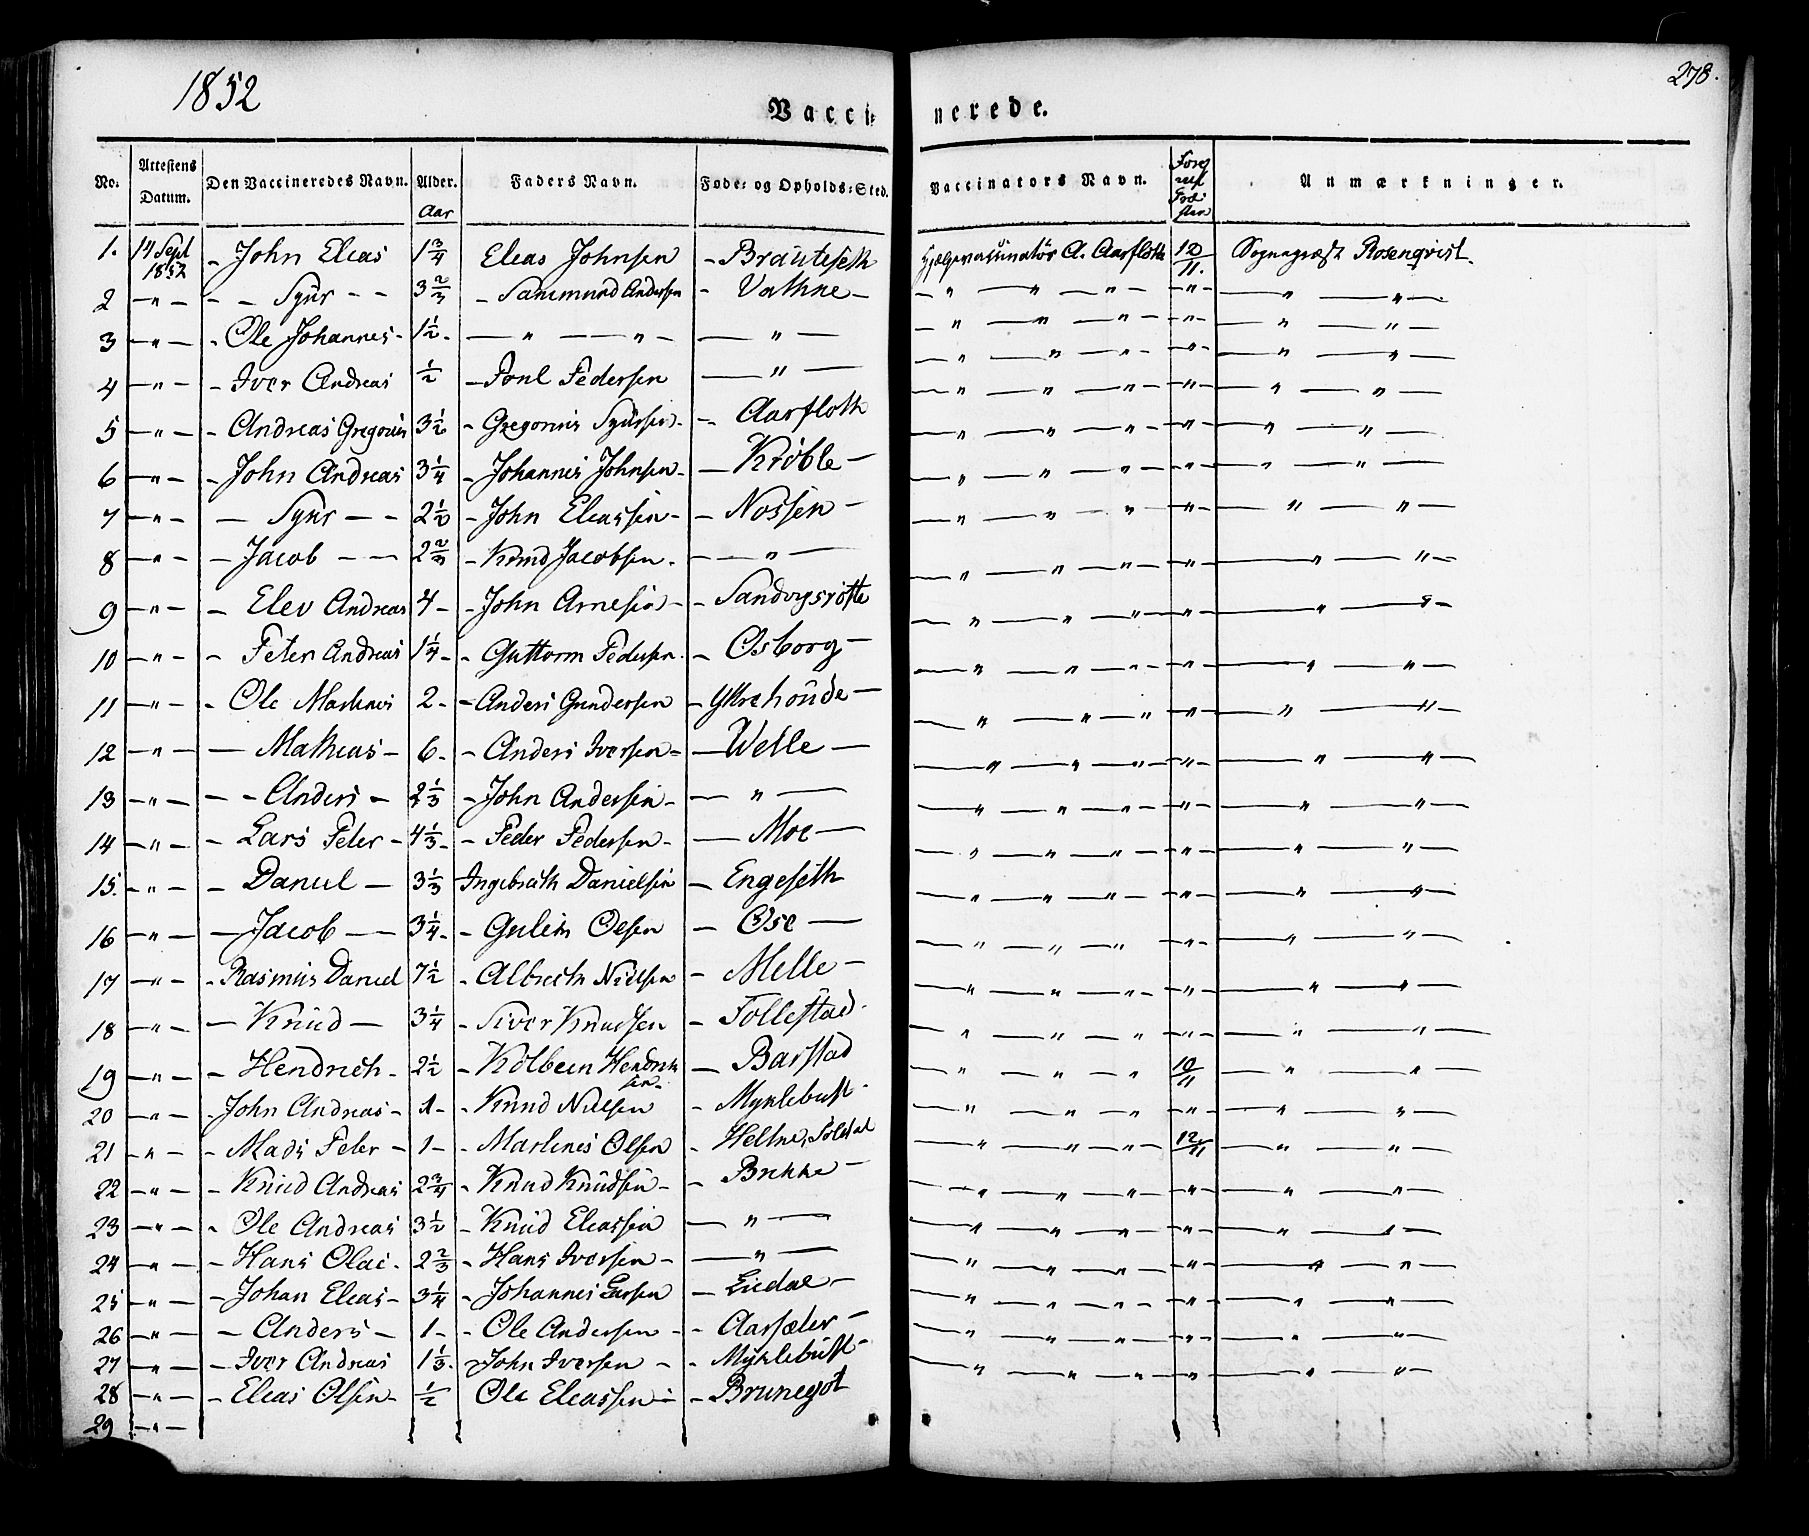 1852
278.
Vacci=nerede.
No. | Attestens Datum. | Den Vaccineredes Navn. | Alder. Aar | Faders Navn. | Føde= og Opholds=Sted. | Vaccinators Navn. | Anmærkninger.
1. 14 Sept 1852 - John Eleas 1 3/4 Eleas Johnsen - Brauteseth Hjelpevaccinatör A. Aarfloth 12/11. Sognepræst Rosenqvist.
2 — " — - - Syur - - 3 2/3 - Samund Andersen - Vathne — — " — " — " — — " — — " — " —
3 — " — - Ole Johannes - 1 1/2 - — " — " — — " — — " — " — " — — " — — " — " —
4 — " — - Iver Andreas 1/2 - Poul Pedersen — " — — " — " — " — — " — — " — " —
5 — " — - Andreas Gregorius 3 1/2 - Gregorius Syursen - - Aarfloth — " — " — " — — " — — " — " —
6 — " — - John Andreas 3 1/4 - Johannes Johnsen - — Kröble — — " — " — " — — " — — " — " —
7 — " — — Syur — - 2 1/2 - John Eleassen - - Nossen — — " — " — " — — " — — " — " —
8 — " — — Jacob — — 2 2/3 - Knud Jacobsen - — " — — " — " — " — — " — — " — " —
9 — " — — Elev Andreas 4 - - John Arnesen - - Sandvigsröste — " — " — " — — " — — " — " —
10 — " — - Peter Andreas 1 1/4 - - Guttorm Pedersen - - Osborg — — " — " — " — — " — — " — " —
11 — " — - Ole Martinus 2 - - Anders Gundersen - Ytrehoüde — — " — " — " — — " — — " — " —
12 — " — — Mathias - 6 - - Anders Iversen - — Welle — — " — " — " — — " — — " — " —
13 — " — - - Anders - 2 1/3 - John Andersen - — " — — " — " — " — — " — — " — " —
14 — " — - Lars Peter - 4 1/3 - - Peder Pedersen - — Moe — — " — " — " — — " — — " — " —
15. - " — - Daniel — 3 1/3 Ingebrith Danielsen — Engeseth — " — " — " — — " — — " — " —
16 — " — — Jacob — - 3 1/4 - - Olsen — Ose — — " — " — " — — " — — " — " —
17 — " — - Rasmus Daniel 7 1/2 - Albreth Nielsen - Melle — — " — " — " — — " — — " — " —
18 — " — — Knud — 3 1/4 - Siver Knudsen - Follestad - — " — " — " — — " — — " — " —
19 — " — - Hendrich - 2 1/2 - Kolbeen Hendrichsen - — Barstad — " — " — " — 10/11 — " — " —
20 — " — - John Andreas - 1 - - Knud Nielsen - Myklebust - — " — " — " — — " — — " — " —
21 - " — - Mads Peter - 1 - - Martines Olsen - Heltne, — " — " — " — 12/11 — " — " —
22 — " — - Knud Andreas 2 3/4 - Knud Knudsen - - Brekke — — " — " — " — — " — — " — " —
23 — " — - Ole Andreas 3 1/2 - Knud Eleassen — " — — " — " — " — — " — — " — " —
24 — " — - Hans Olai - 2 2/3 - Hans Iversen - — " — — " — " — " — — " — — " — " —
25 — " — - Johan Eleas - 3 1/4 - Johannes Larsen — Liedal — — " — " — " — — " — — " — " —
26 — " — — Anders — 1 - - Ole Andersen - - Aarsæter — — " — " — " — — " — — " — " —
27 — " — - Iver Andreas 1 1/3 - John Iversen - - Myklebust - — " — " — " — — " — — " — " —
28 — " — - Eleas Olsen - 1/2 Ole Eleassen - - Brunegot
29 — " —